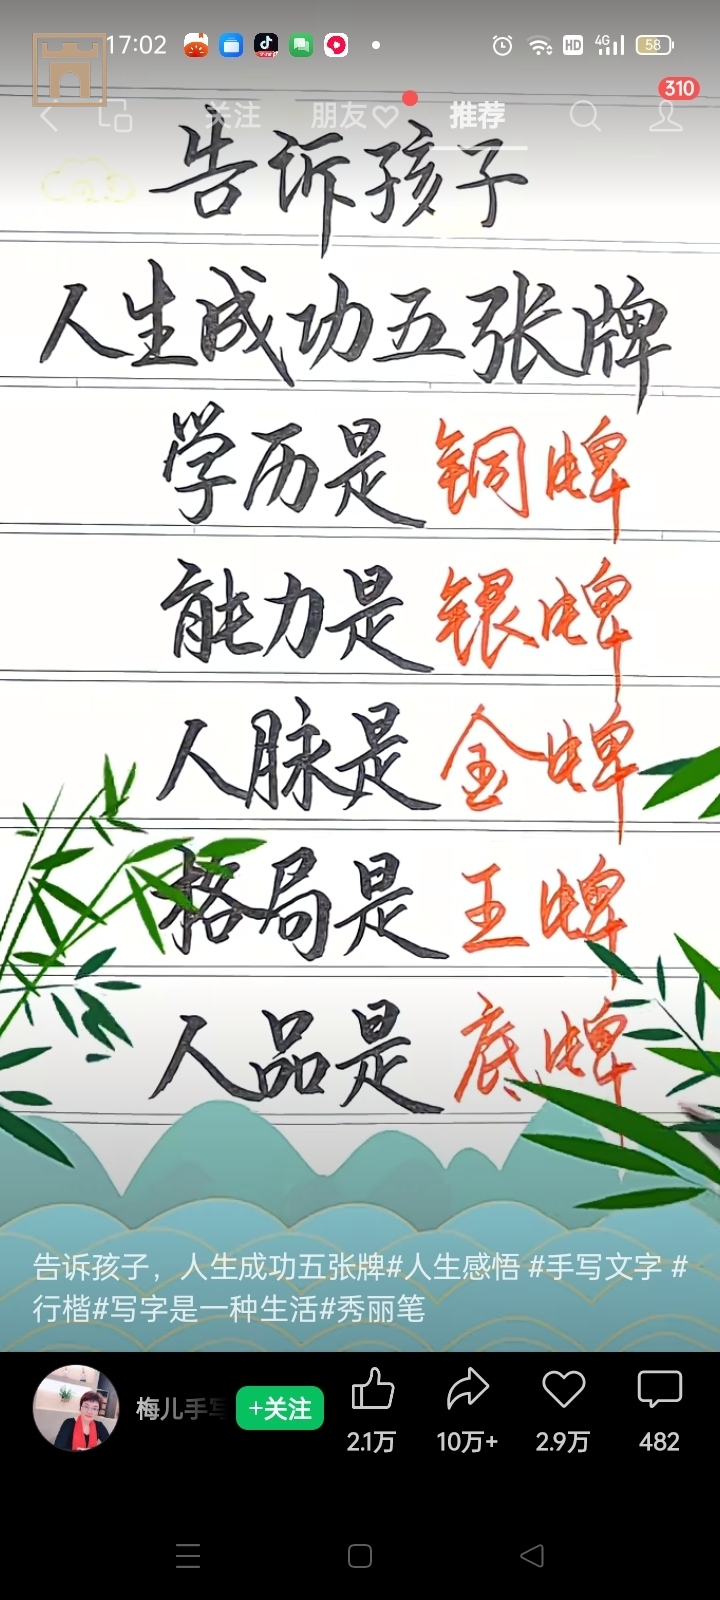 17:02
HD 4G 58
310
关注 朋友 推荐
告诉孩子
人生成功五张牌
学历是铜牌
能力是银牌
人脉是金牌
格局是王牌
人品是底牌
告诉孩子，人生成功五张牌#人生感悟 #手写文字 #
行楷#写字是一种生活#秀丽笔
梅儿手写 +关注
2.1万 10万+ 2.9万 482